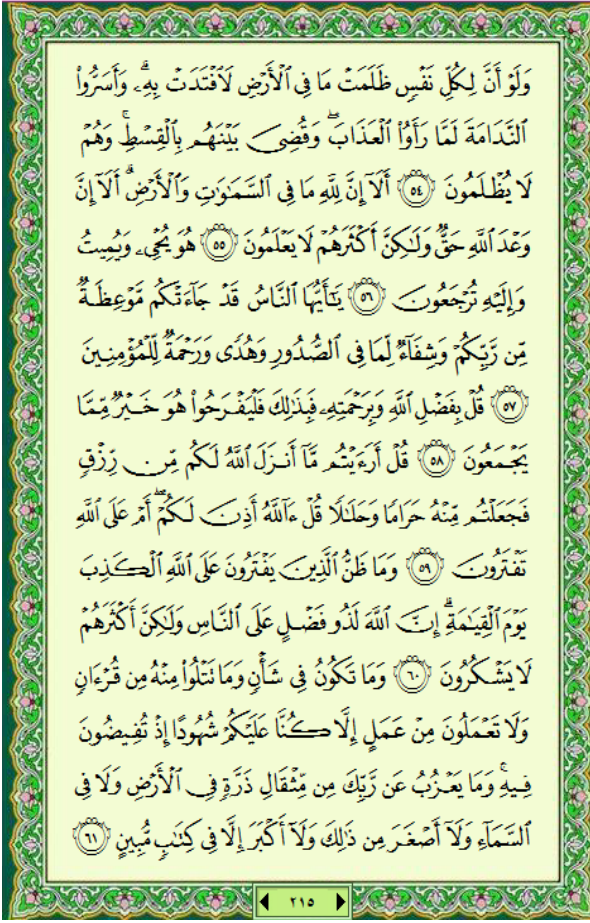 وَلَوْ أَنَّ لِكُلِّ نَفْسٍ ظَلَمَتْ مَا فِي ٱلْأَرْضِ لَٱفْتَدَتْ بِهِۦۗ وَأَسَرُّوا۟
ٱلنَّدَامَةَ لَمَّا رَأَوُا۟ ٱلْعَذَابَۖ وَقُضِىَ بَيْنَهُم بِٱلْقِسْطِۚ وَهُمْ
لَا يُظْلَمُونَ ٥٤ أَلَآ إِنَّ لِلَّهِ مَا فِي ٱلسَّمَٰوَٰتِ وَٱلْأَرْضِۗ أَلَآ إِنَّ
وَعْدَ ٱللَّهِ حَقٌّ وَلَٰكِنَّ أَكْثَرَهُمْ لَا يَعْلَمُونَ ٥٥ هُوَ يُحْىِۦ وَيُمِيتُ
وَإِلَيْهِ تُرْجَعُونَ ٥٦ يَٰٓأَيُّهَا ٱلنَّاسُ قَدْ جَآءَتْكُم مَّوْعِظَةٌ
مِّن رَّبِّكُمْ وَشِفَآءٌ لِّمَا فِي ٱلصُّدُورِ وَهُدًى وَرَحْمَةٌ لِّلْمُؤْمِنِينَ
٥٧ قُلْ بِفَضْلِ ٱللَّهِ وَبِرَحْمَتِهِۦ فَبِذَٰلِكَ فَلْيَفْرَحُوا۟ هُوَ خَيْرٌ مِّمَّا
يَجْمَعُونَ ٥٨ قُلْ أَرَءَيْتُم مَّآ أَنزَلَ ٱللَّهُ لَكُم مِّن رِّزْقٍ
فَجَعَلْتُم مِّنْهُ حَرَامًا وَحَلَٰلًا قُلْ ءَآللَّهُ أَذِنَ لَكُمْۖ أَمْ عَلَى ٱللَّهِ
تَفْتَرُونَ ٥٩ وَمَا ظَنُّ ٱلَّذِينَ يَفْتَرُونَ عَلَى ٱللَّهِ ٱلْكَذِبَ
يَوْمَ ٱلْقِيَٰمَةِۗ إِنَّ ٱللَّهَ لَذُو فَضْلٍ عَلَى ٱلنَّاسِ وَلَٰكِنَّ أَكْثَرَهُمْ
لَا يَشْكُرُونَ ٦٠ وَمَا تَكُونُ فِي شَأْنٍ وَمَا تَتْلُوا۟ مِنْهُ مِن قُرْءَانٍ
وَلَا تَعْمَلُونَ مِنْ عَمَلٍ إِلَّا كُنَّا عَلَيْكُمْ شُهُودًا إِذْ تُفِيضُونَ
فِيهِۚ وَمَا يَعْزُبُ عَن رَّبِّكَ مِن مِّثْقَالِ ذَرَّةٍ فِي ٱلْأَرْضِ وَلَا فِي
ٱلسَّمَآءِ وَلَآ أَصْغَرَ مِن ذَٰلِكَ وَلَآ أَكْبَرَ إِلَّا فِي كِتَٰبٍ مُّبِينٍ ٦١
٢١٥